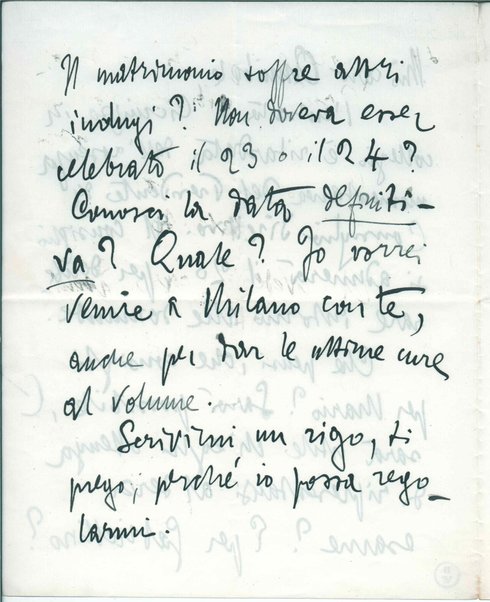 Il matrimonio soffre altri
indugi? Non doveva esser
celebrato il 23 o il 24?
Conosci la data definiti-
va? Quale? Io vorrei
venire a Milano con te,
anche per dar le ultime cure
al volume.
Scrivimi un rigo, ti
prego, perché io possa rego-
larmi.